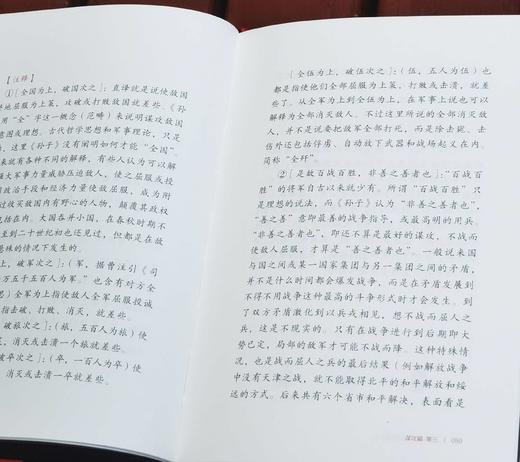 【注释】
①[全国为上，破国次之]：直译就是说使敌国
地屈服为上策，攻破或打败敌国就差些。《孙
用“全”字这一概念（范畴）来说明谋攻敌国
意图或理想。古代哲学思想和军事理论，只是
，这里《孙子》没有阐明如何才能“全国”。
来就有各种不同的解释，有些人认为可以解
强大军事力量威胁压迫敌人，使之屈服或投
政治手段和经济力量使敌屈服，成为附
过收买敌国内有野心的人物，颠覆其政权
包括在内。大国吞并小国，在春秋时期不
至到二十世纪初也还见过，但都是在敌
悬殊的情况下发生的。
上，破军次之]：（军，据曹注引《司
万五千五百人为军。”也含有对方全
思）全军为上指使敌人全军屈服投诚
指击破、打败、消灭，就差些。
，破旅次之]：（旅，五百人为旅）使
消灭或击溃一个旅就差些。
破卒次之]：（卒，一百人为卒）使
消灭或击溃一卒就差些。
[全伍为上，破伍次之]：（伍，五人为伍）也
都是指使他们全部屈服为上策，打败或击溃，就差
些了。从全军为上到全伍为上，在军事上说也可以
解释为全部消灭敌人。不过这里所说的全部消灭敌
人，并不是说要把敌军全部打死，而是除击毙、击
伤外也包括俘虏、自动放下武器和战场起义在内。
简称“全歼”。
②[是故百战百胜，非善之善者也]：“百战百
胜”的将军自古以来就少有。所谓“百战百胜”只
是理想的说法，而《孙子》认为“非善之善者也”，
“善之善”意即最善的战争指导，或最高明的用兵。
“非善之善者也”，即还不算是最好的谋攻，不战而
使敌人屈服，才算是“善之善者也”。一般说来国
与国之间或某一国家集团与另一集团之间的矛盾，
并不是什么时间都会爆发战争，而是在矛盾发展到
不得不用战争这种最高的斗争形式时才会发生。到
了双方矛盾激化到以兵戎相见，想不战而屈人之
兵，这是不现实的。只有在战争进行到后期即大
势已定，局部的敌军才可能不战而降。这种特殊情
况，也是战而屈人之兵的最后结果（例如解放战争
中没有天津之战，就不能取得北平的和平解放和绥
远的方式。后来共有六个省市和平解决，表面看是
谋攻篇 第三 | 050